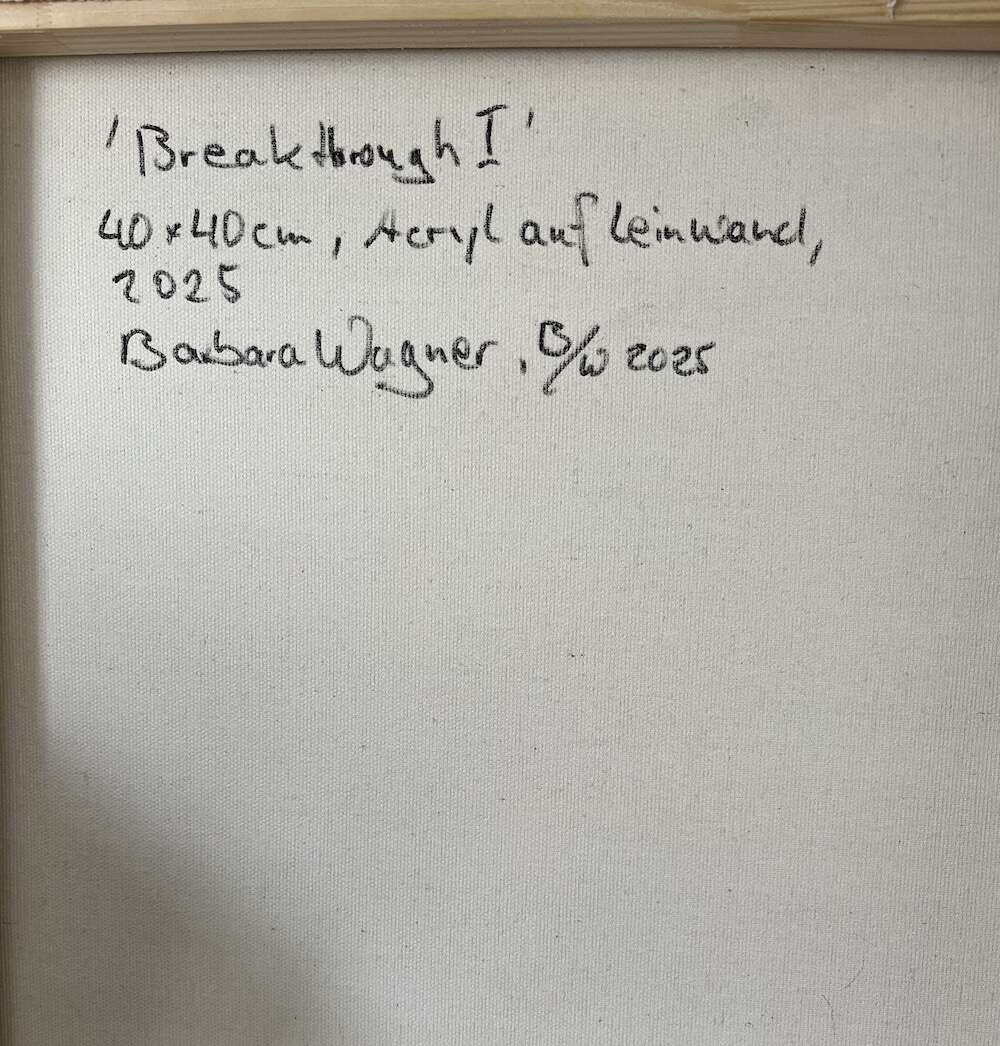 'Breakthrough I'
40x40cm, Acryl auf Leinwand,
2025
Barbara Wagner, B/W 2025